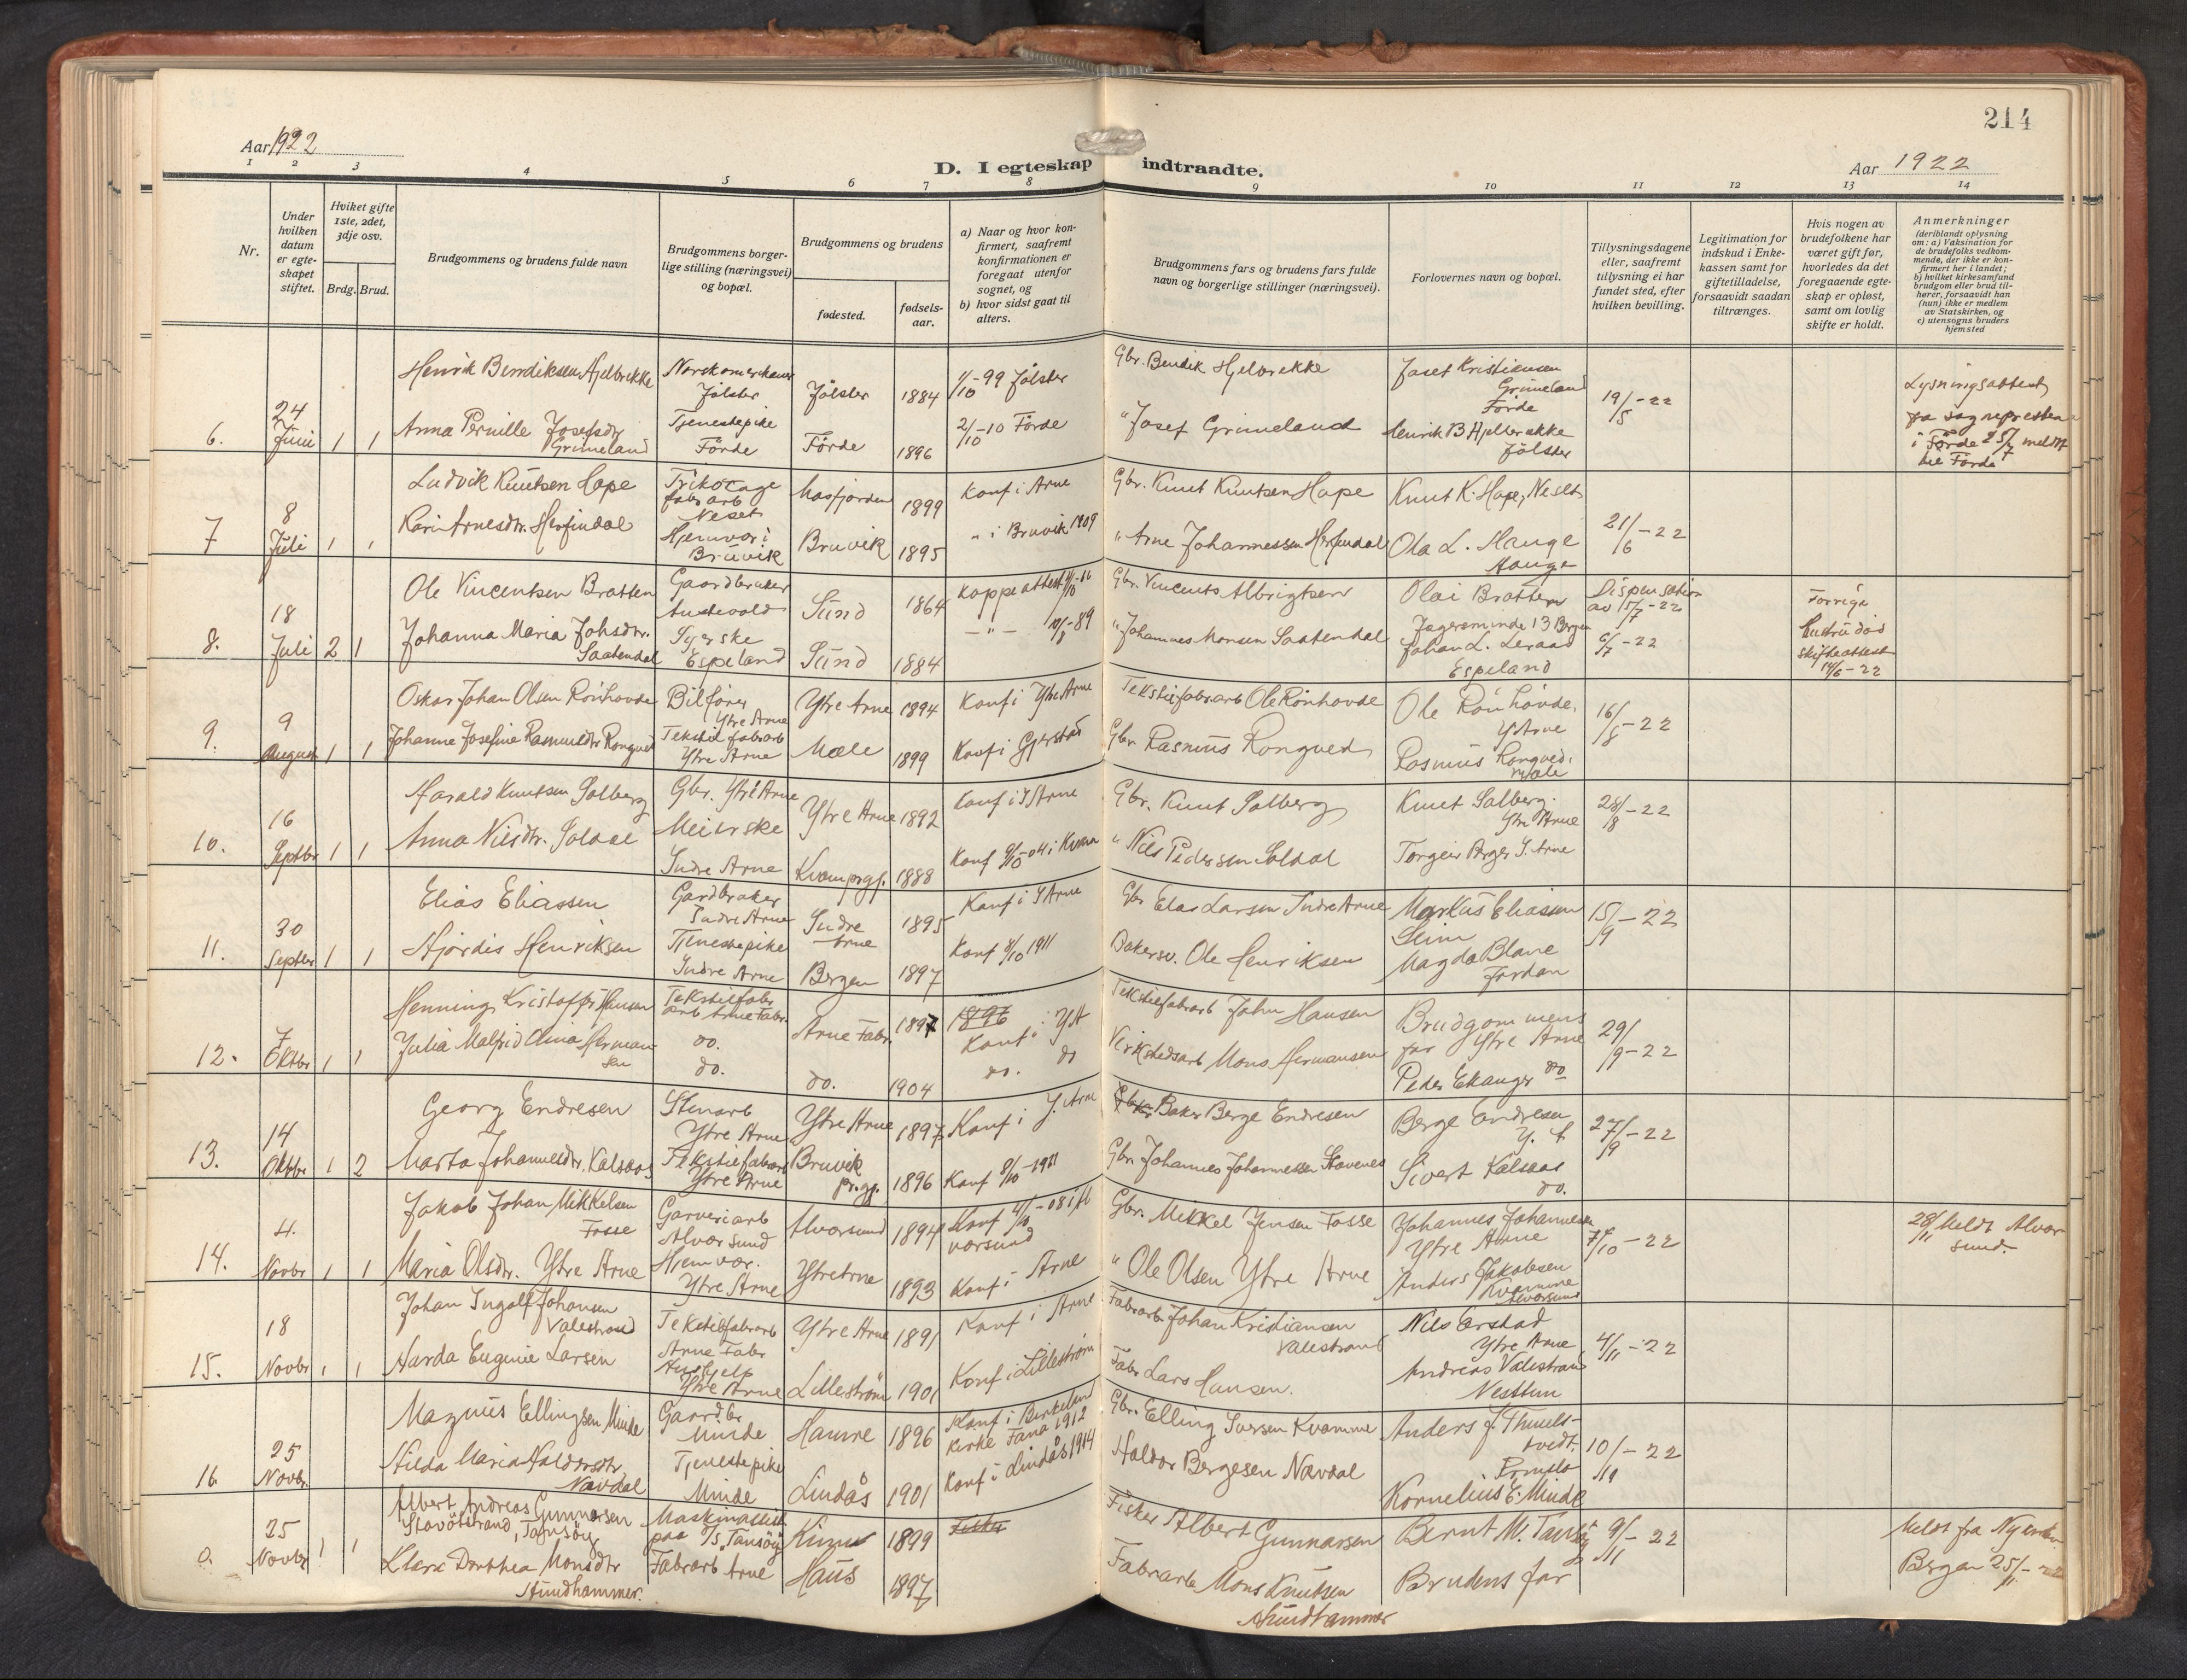 214
Aar 1922
D. I egteskap indtraadte.
Aar 1922
1 2 3 4 5 6 7 8 9 10 11 12 13 14
Nr.
Under hvilken datum er egteskapet stiftet.
Hviket gifte 1ste, 2det, 3dje osv.
Brdg. Brud.
Brudgommens og brudens fulde navn
Brudgommens borgerlige stilling (næringsvei) og bopæl.
Brudgommens og brudens
fødested.
fødselsaar.
a) Naar og hvor konfirmert, saafremt konfirmationen er foregaat utenfor sognet, og
b) hvor sidst gaat til alters.
Brudgommens fars og brudens fars fulde navn og borgerlige stillinger (næringsvei).
Forlovernes navn og bopæl.
Tillysningsdagene eller, saafremt tillysning ei har fundet sted, efter hvilken bevilling.
Legitimation for indskud i Enkekassen samt for giftetilladelse, forsaavidt saadan tiltrænges.
Hvis nogen av brudefolkene har været gift før, hvorledes da det foregaaende egteskap er opløst, samt om lovlig skifte er holdt.
Anmerkninger
(deriblandt oplysning om: a) Vaksination for de brudefolks vedkommende, der ikke er konfirmert her i landet; b) hvilket kirkesamfund brudgom eller brud tilhører, forsaavidt han (hun) ikke er medlem av Statskirken, og c) utensogns bruders hjemsted
6. 24 Juni 1 1
Henrik Bendiksen Hjelbrekke
Norskamerikaner Jølster
Jølster 1884
1/10-99 Jølster
Gbr. Bendik Hjelbrekke
Josef Kristiansen Grimeland Förde
19/5-22
Anna Pernille Josefsdtr Grimeland
Tjenestepike Förde
Förde 1896
2/10-10 Förde
" Josef Grimeland
Henrik B Hjelbrekke Jølster
Lysningsattest fra sognepresten i Förde 25/7 meldt til Förde
7 8 Juli 1 1
Ludvik Knutsen Hope
Trikotage fabr arb Neset
Masfjorden 1899
Konf i Arne
Gbr. Knut Knutsen Hope
Knut K. Hope, Neset
21/6-22
Kari Arnesdtr. Herfindal
Hjemvær i Bruvik
Bruvik 1895
" i Bruvik 1909
" Arne Johannessen Herfindal
Ola L. Hauge Hauge
8. 18 Juli 2 1
Ole Vincentsen Bratten
Gaardbruker Austevold
Sund 1864
Koppeattest
Gbr. Vincents Albrigtsen
Olai Bratten Jegerminde 13 Bergen
Dispensation av 15/7-22
Johanna Maria Johsdtr. Saatendal
Syerske Espeland
Sund 1884
- " - 10/8-89
" Johannes Monsen Saatendal
Johan L. Leraas Espeland
6/7-22
Forrige hustru död skifteattest 14/6-22
9. 9 August 1 1
Oskar Johan Olsen Rönhovde
Bilförer Ytre Arne
Ytre Arne 1894
Konf i Ytre Arne
Tekstilfabrarb Ole Rönhovde
Ole Rönhövde, Y Arne
16/8-22
Johanne Josefine Rasmusdtr Rongved
Tekstil fabrarb Ytre Arne
Mæle 1899
Konf i Gjerstad
Gbr Rasmus Rongved
Rasmus Rongved, Mæle
10. 16 Septbr 1 1
Harald Knutsen Solberg
Gbr. Ytre Arne
Ytre Arne 1892
Konf i Y Arne
Gbr. Knut Solberg
Knut Solberg. Ytre Arne
28/8-22
Anna Nilsdtr. Soldal
Meierske Indre Arne
Kvam prgj. 1888
Konf 9/10-04 i Kvam
" Nils Pedersen Soldal
Torgeir Berger I. Arne
11. 30 Septbr 1 1
Elias Eliassen
Gardbruker Indre Arne
Indre Arne 1895
Konf i Y Arne
Gbr Elias Larsen Indre Arne
Markus Eliassen Seim
15/9-22
Hjördis Henriksen
Tjenestepike Indre Arne
Bergen 1897
Konf 8/10 1911
Bakersv. Ole Henriksen
Magda Blane Fordan
12. 7 Oktbr 1 1
Henning Kristoffer Hansen
Tekstilfabr arb Arne Fabr.
Arne Fabr. 1897
1896 Konf i Y A
Tekstilfabrarb John Hansen
Brudgommens far Ytre Arne
29/9-22
Julia Malfrid Olina Hermansen
do. do.
do. 1904
do. do
Verkstedsarb Mons Hermansen
Peder Ekanger do
13. 14 Oktbr 1 2
Georg Endresen
Stenarb Ytre Arne
Ytre Arne 1897
Konf i Y. Arne
Baker Berge Endresen
Berge Endresen Y. A
27/9-22
Marta Johannesdtr. Kalsaas
Tekstilfabrarb Ytre Arne
Bruvik pr.gj. 1896
Konf 8/10-1911
Gbr. Johannes Johannessen Stavenes
Sivert Kalsaas do.
14. 4. Novbr 1 1
Jakob Johan Mikkelsen Fosse
Garveriarb Alversund
Alversund 1894
Konf 4/10-08 i Alversund
Gbr. Mikkel Jensen Fosse
Johannes Johannessen Ytre Arne
7/10-22
28/11 Meldt Alversund
Maria Olsdtr. Ytre Arne
Hjemvær. Ytre Arne
Ytre Arne 1893
Konf i Arne
" Ole Olsen Ytre Arne
Anders Jakobsen Kvamme Alversund
15. 18 Novbr 1 1
Johan Ingolf Johansen Valestrand
Tekstilfabrarb Arne Fabr
Ytre Arne 1891
Konf i Arne
Fabrarb Johan Kristiansen Valestrand
Nils Erstad Ytre Arne
4/11-22
Harda Eugenie Larsen
Hushjelp Ytre Arne
Lilleström 1901
Konf i Lilleström
Fabr Lars Hansen.
Andreas Valestrand Nesttun
16 25 Novbr.
Magnus Ellingsen Minde
Gaardbr Minde
Hamre 1896
Konf i Birkeland kirke Fana 1912
Gbr. Elling Iversen Kvamme
Anders J. Thuelstvedt.
10/11-22
Hilda Maria Haldorsdtr Nævdal
Tjenestepike Minde
Lindås 1901
Konf i Lindås 1914
Haldor Bergesen Nævdal
Kornelius E. Minde
25 Novbr 1 1
Albert Andreas Gunnarsen Stavöstrand, Tansöy
Maskinassist paa S/S "Tansöy"
Kinn 1899
Fisker
Fisker Albert Gunnarsen
Bernt M. Tansöy
9/11-22
Meldt fra Nykirken Bergen 25/11-22
Klara Dorthea Monsdtr Hundhammer.
Fabrarb Arne
Haus 1897
Fabrarb Mons Knutsen Hundhammer
Brudens far